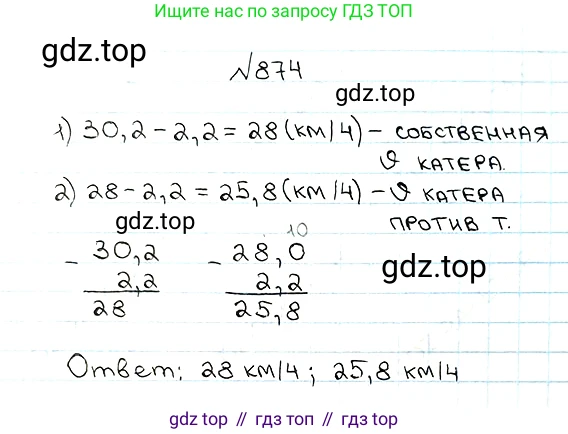 Ищите нас по запросу ГДЗ ТОП
gdz.top
№874
gdz.top
1) 30,2 - 2,2 = 28 (км/ч) - собственная
ϑ катера.
2) 28 - 2,2 = 25,8 (км/ч) - ϑ катера
против т.
gdz.top
10
- 30,2 - 28,0
2,2 2,2
gdz.top
28 25,8
Ответ: 28 км/ч; 25,8 км/ч
gdz.top // гдз топ // гдз.топ